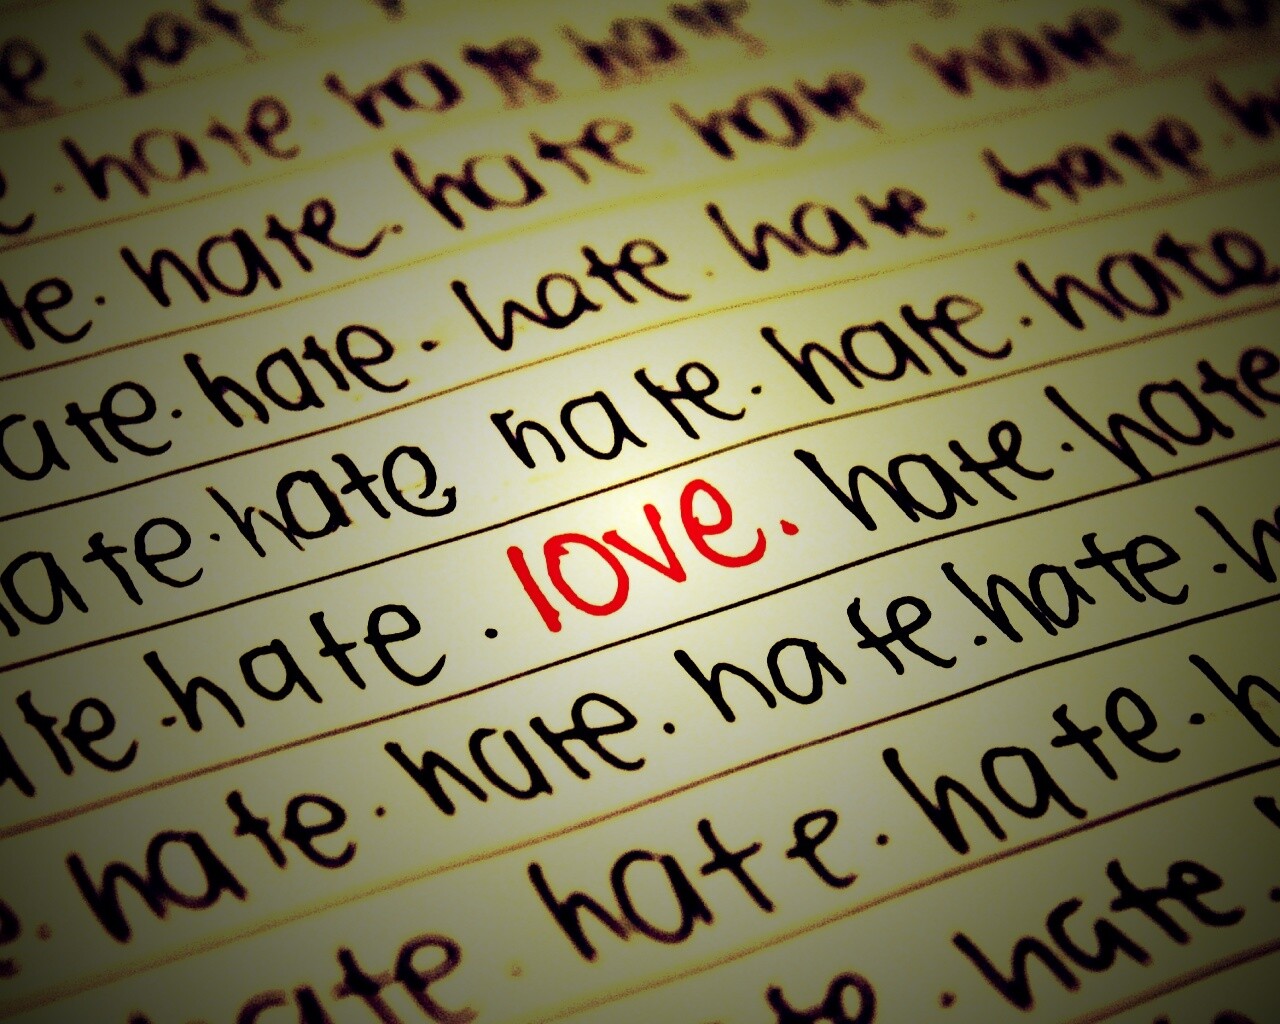 hate
hate hate hate
hate. hate hate hate
te. hate. hate. hate
ate. hate. hate. hate. hate
hate. hate hate. hate. hate
ate. hate. love. hate. hate
hate. hate. hate. hate
hate. hate. hate
hate. hate